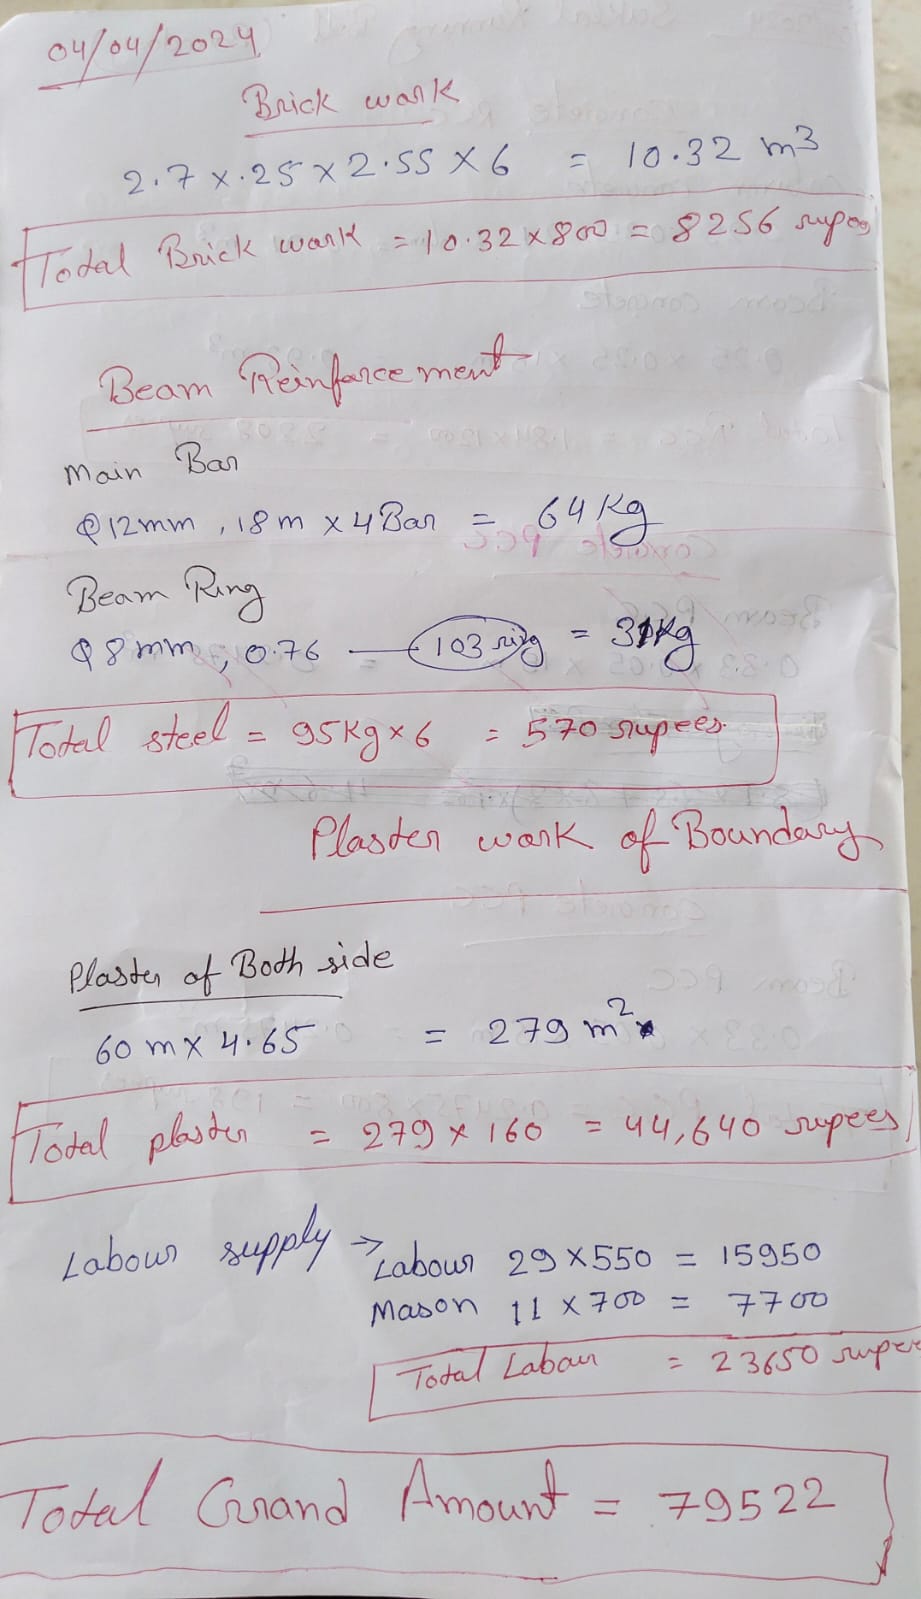 04/04/2024
Brick work
2.7 x .25 x 2.55 x 6 = 10.32 m3
Total Brick work = 10.32 x 800 = 8256 rupees
Beam Reinforcement
Main Bar
Φ12mm, 18m x 4 Bar = 64 Kg
Beam Ring
Φ8mm, 0.76 — 103 ring = 31Kg
Total steel = 95Kg x 6 = 570 rupees.
Plaster work of Boundary
Plaster of Both side
60 m x 4.65 = 279 m2
Total plaster = 279 x 160 = 44,640 rupees
Labour supply → Labour 29 x 550 = 15950
Mason 11 x 700 = 7700
Total Labour = 23650 rupee
Total Grand Amount = 79522